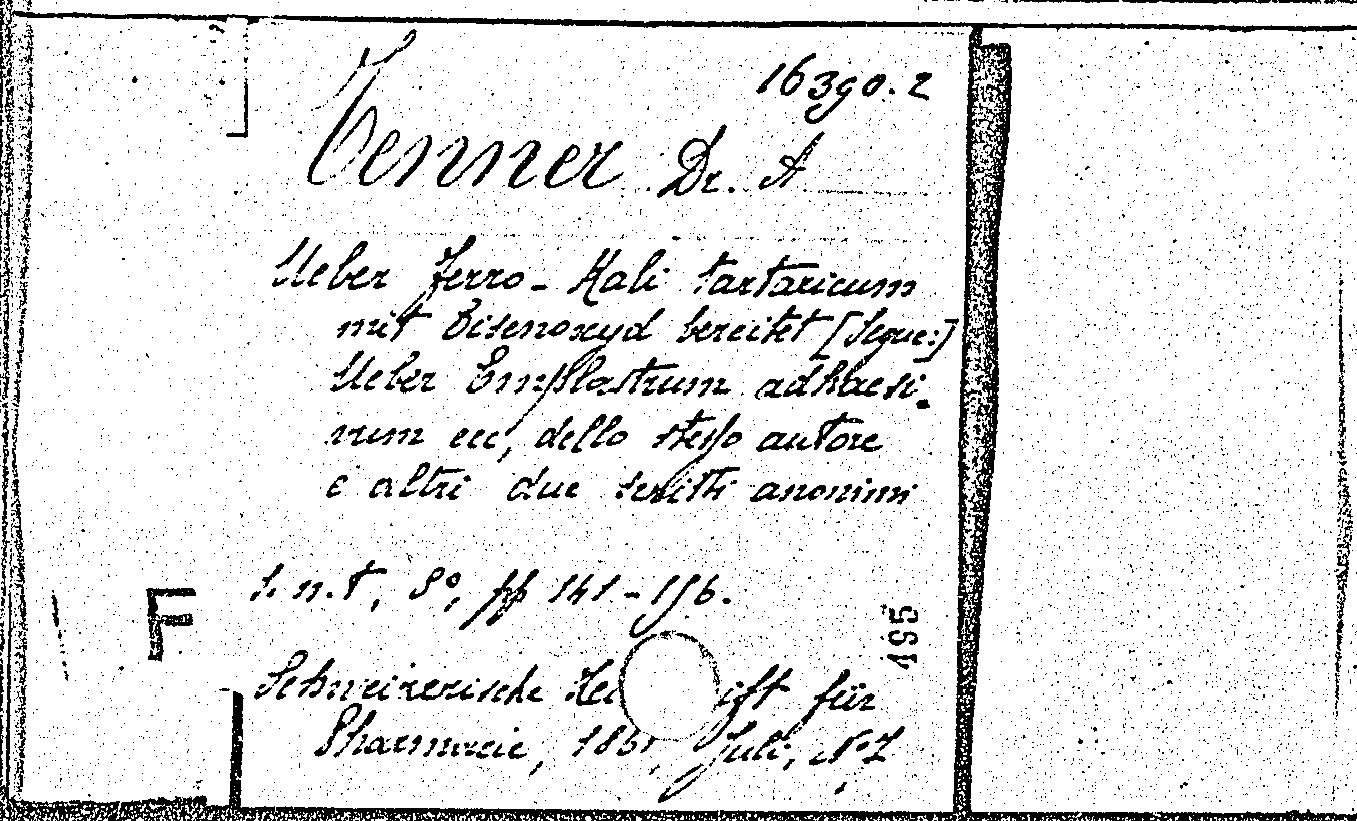 16390.2
Tenner Dr. A
Ueber Ferro-Kali tartaricum
mit Eisenoxyd bereitet [Segue:]
Ueber Emplastrum adhaesi-
vum ecc, dello stesso autore
e altri due scritti anonimi
s. n. t, 8°, pp 141-156.
495
Schweizerische Zei ift für
Pharmacie, Juli, N. 7
F